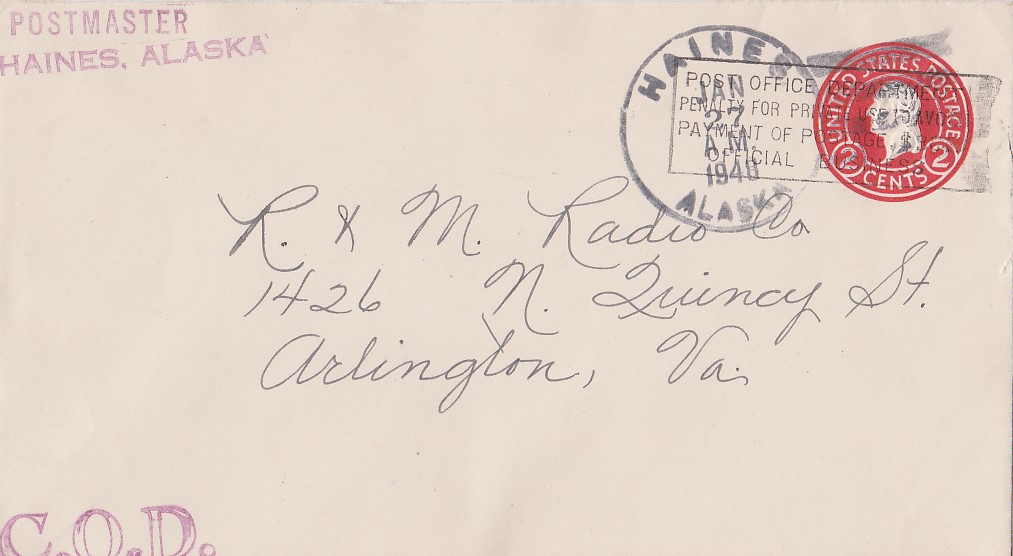 POSTMASTER
HAINES, ALASKA
HAINES
JAN
27
A.M.
1948
ALASKA
POST OFFICE DEPARTMENT
PENALTY FOR PRIVATE USE TO AVOID
PAYMENT OF POTAGE $300
OFFICIAL BUSINESS
UNITED STATES POSTAGE
2 CENTS 2
R. & M. Radio Co
1426 N. Quincy St.
Arlington, Va.
C.O.D.